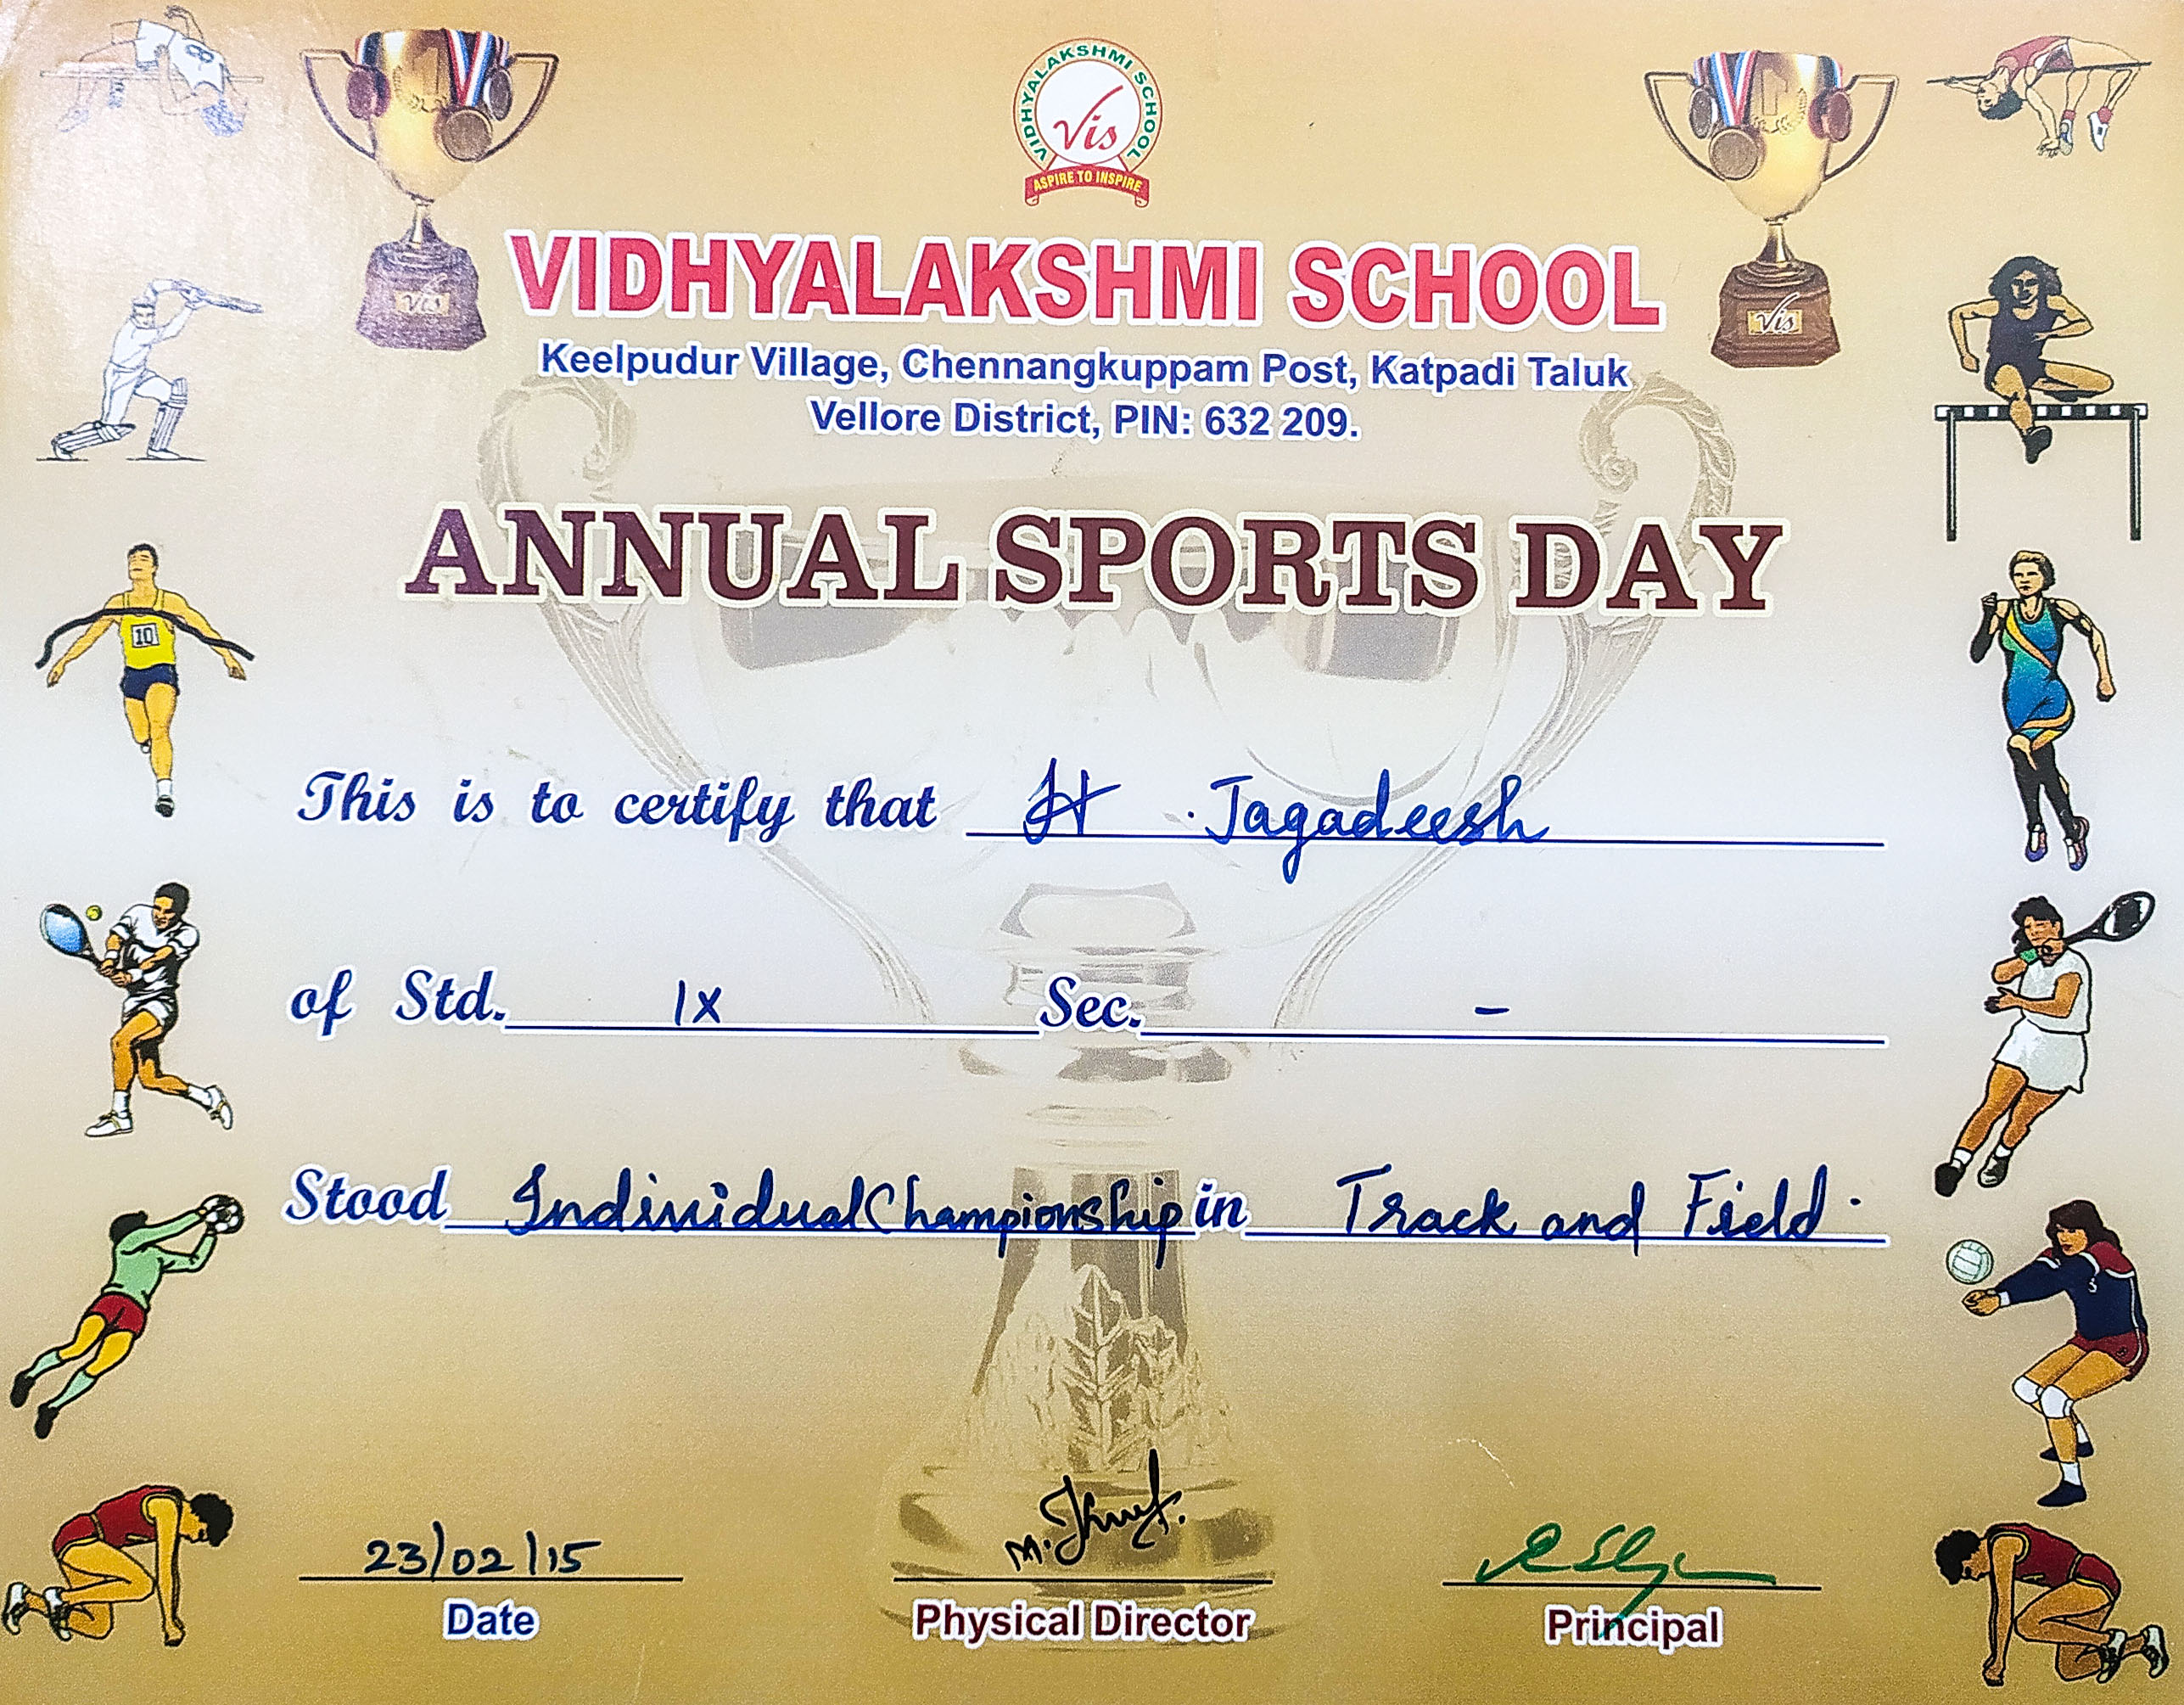 VIDHYALAKSHMI SCHOOL
Vis
ASPIRE TO INSPIRE
Vis
Vis
VIDHYALAKSHMI SCHOOL
Keelpudur Village, Chennangkuppam Post, Katpadi Taluk
Vellore District, PIN: 632 209.
ANNUAL SPORTS DAY
10
This is to certify that H. Jagadeesh
of Std. IX Sec. -
Stood Individual Championship in Track and Field.
23/02/15
Date
Physical Director
Principal